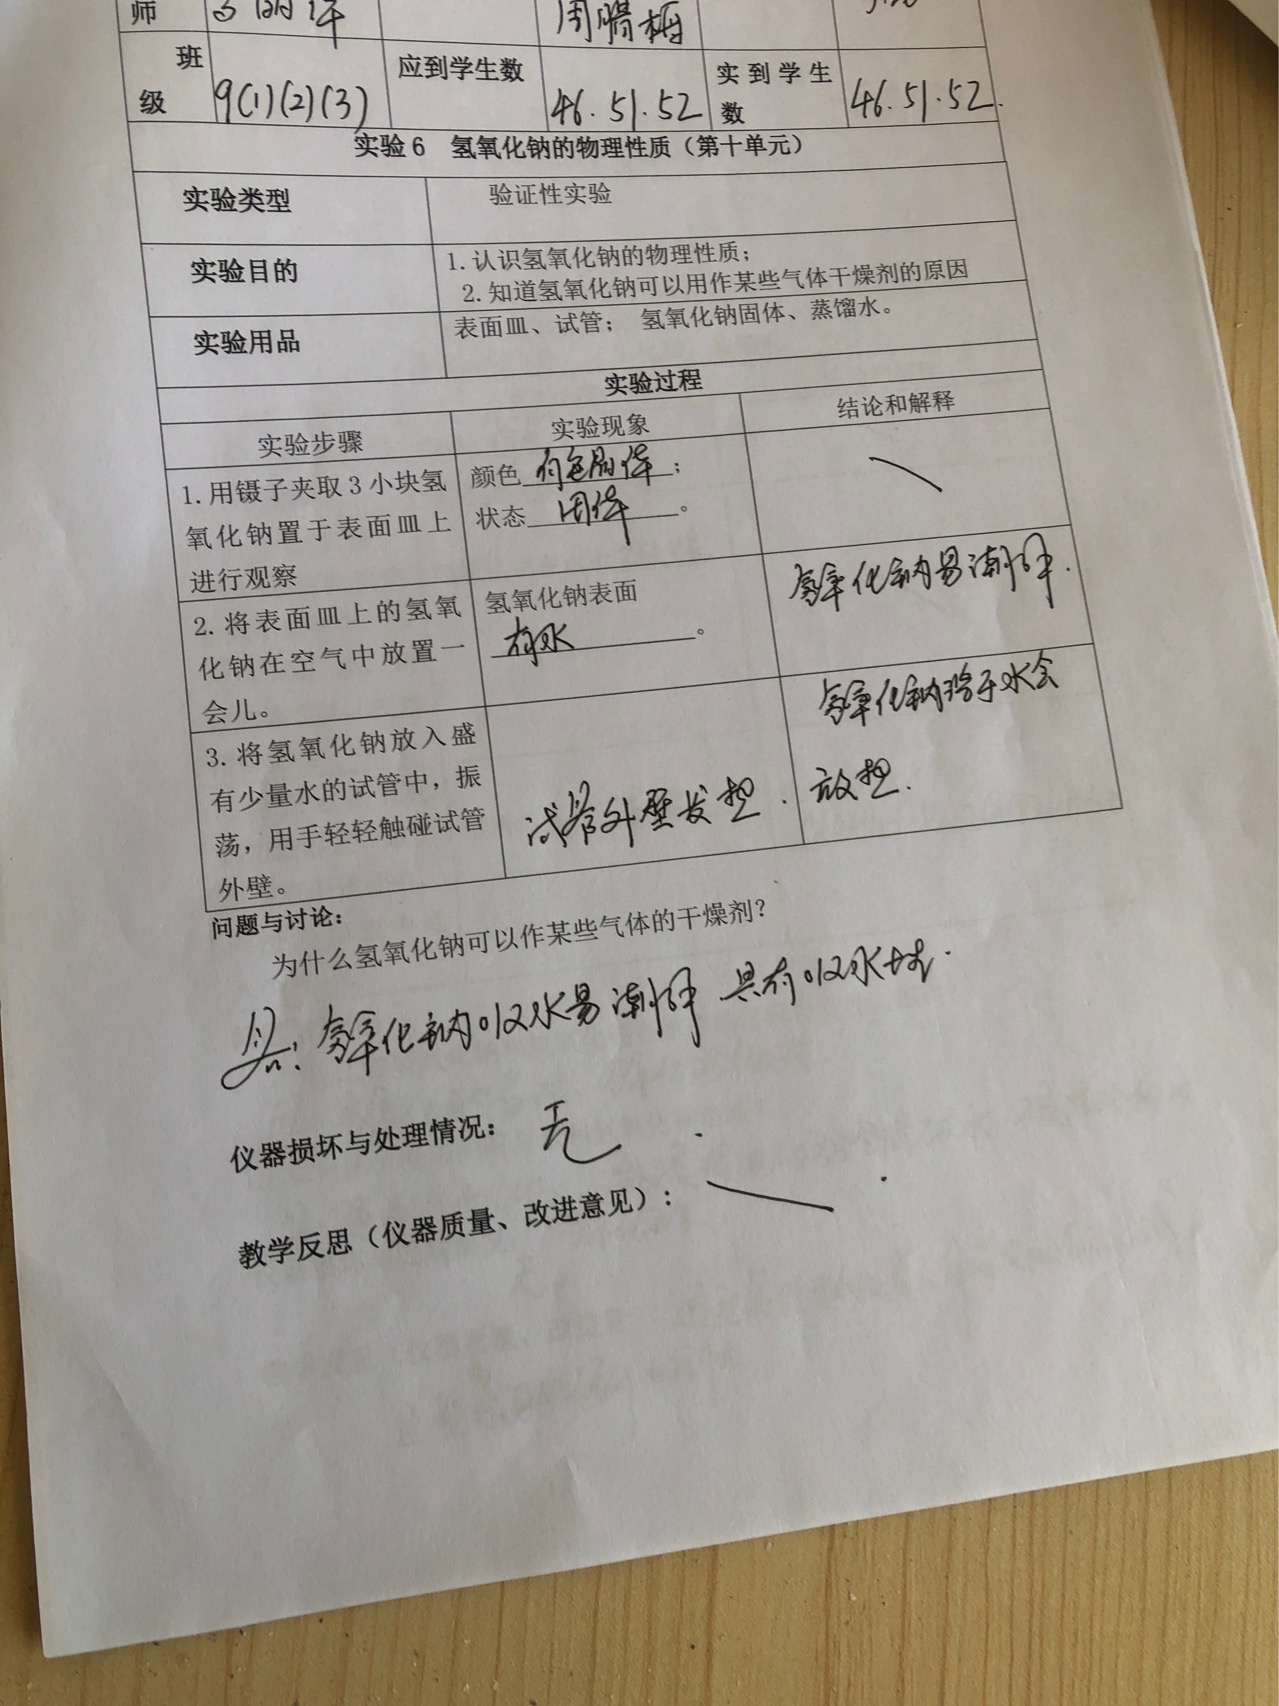 师 周腊梅
班级 9(1)(2)(3) 应到学生数 46.51.52 实到学生数 46.51.52.
实验6 氢氧化钠的物理性质（第十单元）
实验类型 验证性实验
实验目的 1.认识氢氧化钠的物理性质；
2.知道氢氧化钠可以用作某些气体干燥剂的原因
实验用品 表面皿、试管； 氢氧化钠固体、蒸馏水。
实验过程
实验步骤 实验现象 结论和解释
1.用镊子夹取3小块氢
氧化钠置于表面皿上
进行观察
颜色 白色固体；
状态 固体。
2.将表面皿上的氢氧
化钠在空气中放置一
会儿。
氢氧化钠表面
有水。
氢氧化钠易潮解.
3.将氢氧化钠放入盛
有少量水的试管中，振
荡，用手轻轻触碰试管
外壁。
试管外壁发热.
氢氧化钠溶于水会
放热.
问题与讨论：
为什么氢氧化钠可以作某些气体的干燥剂？
答：氢氧化钠吸水易潮解 具有吸水性.
仪器损坏与处理情况： 无
教学反思（仪器质量、改进意见）：